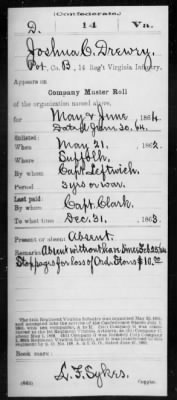 (Confederate.)
D. 14 Va.
Joshua C. Drewry,
Pvt, Co. B, 14 Reg't Virginia Infantry.
Appears on
Company Muster Roll
of the organization named above,
for May & June 1864.
Dated June 30, 64.
Enlisted:
When May 21, 1862.
Where Suffolk.
By whom Capt. Leftwich.
Period 3 yrs or war.
Last paid:
By whom Capt. Clark.
To what time Dec. 31, 1863.
Present or absent: Absent.
Remarks: Absent without leave since Feb 25 64
Stoppages for loss of Ord. Stores $10.00
Book mark:
L. T. Sykes.
Copyist.